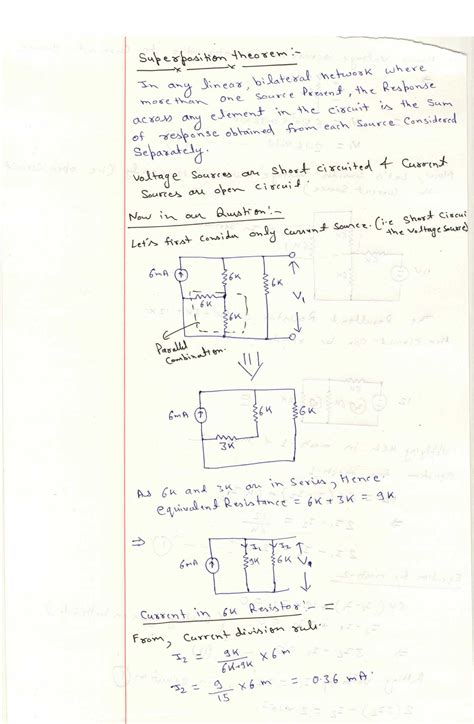 Superposition theorem:-
In any linear, bilateral network where
more than one source Present, the Response
across any element in the circuit is the Sum
of response obtained from each Source Considered
Separately.
Voltage Sources are Short circuited & Current
Sources are open circuit.
Now in our Question:-
Let's first consider only current source. (i.e Short Circuit
the voltage source)
6mA
6K
6K
V1
6K
6K
Parallel
Combination.
6mA
6K
6K
3K
As 6K and 3K are in Series, Hence
equivalent Resistance = 6K + 3K = 9K
⇒
6mA
I1
I2
9K
6K
V1
Current in 6K Resistor:- =
From, Current division rule.
I2 = 9K / 6K+9K × 6m
I2 = 9 / 15 × 6m = 0.36 mA.